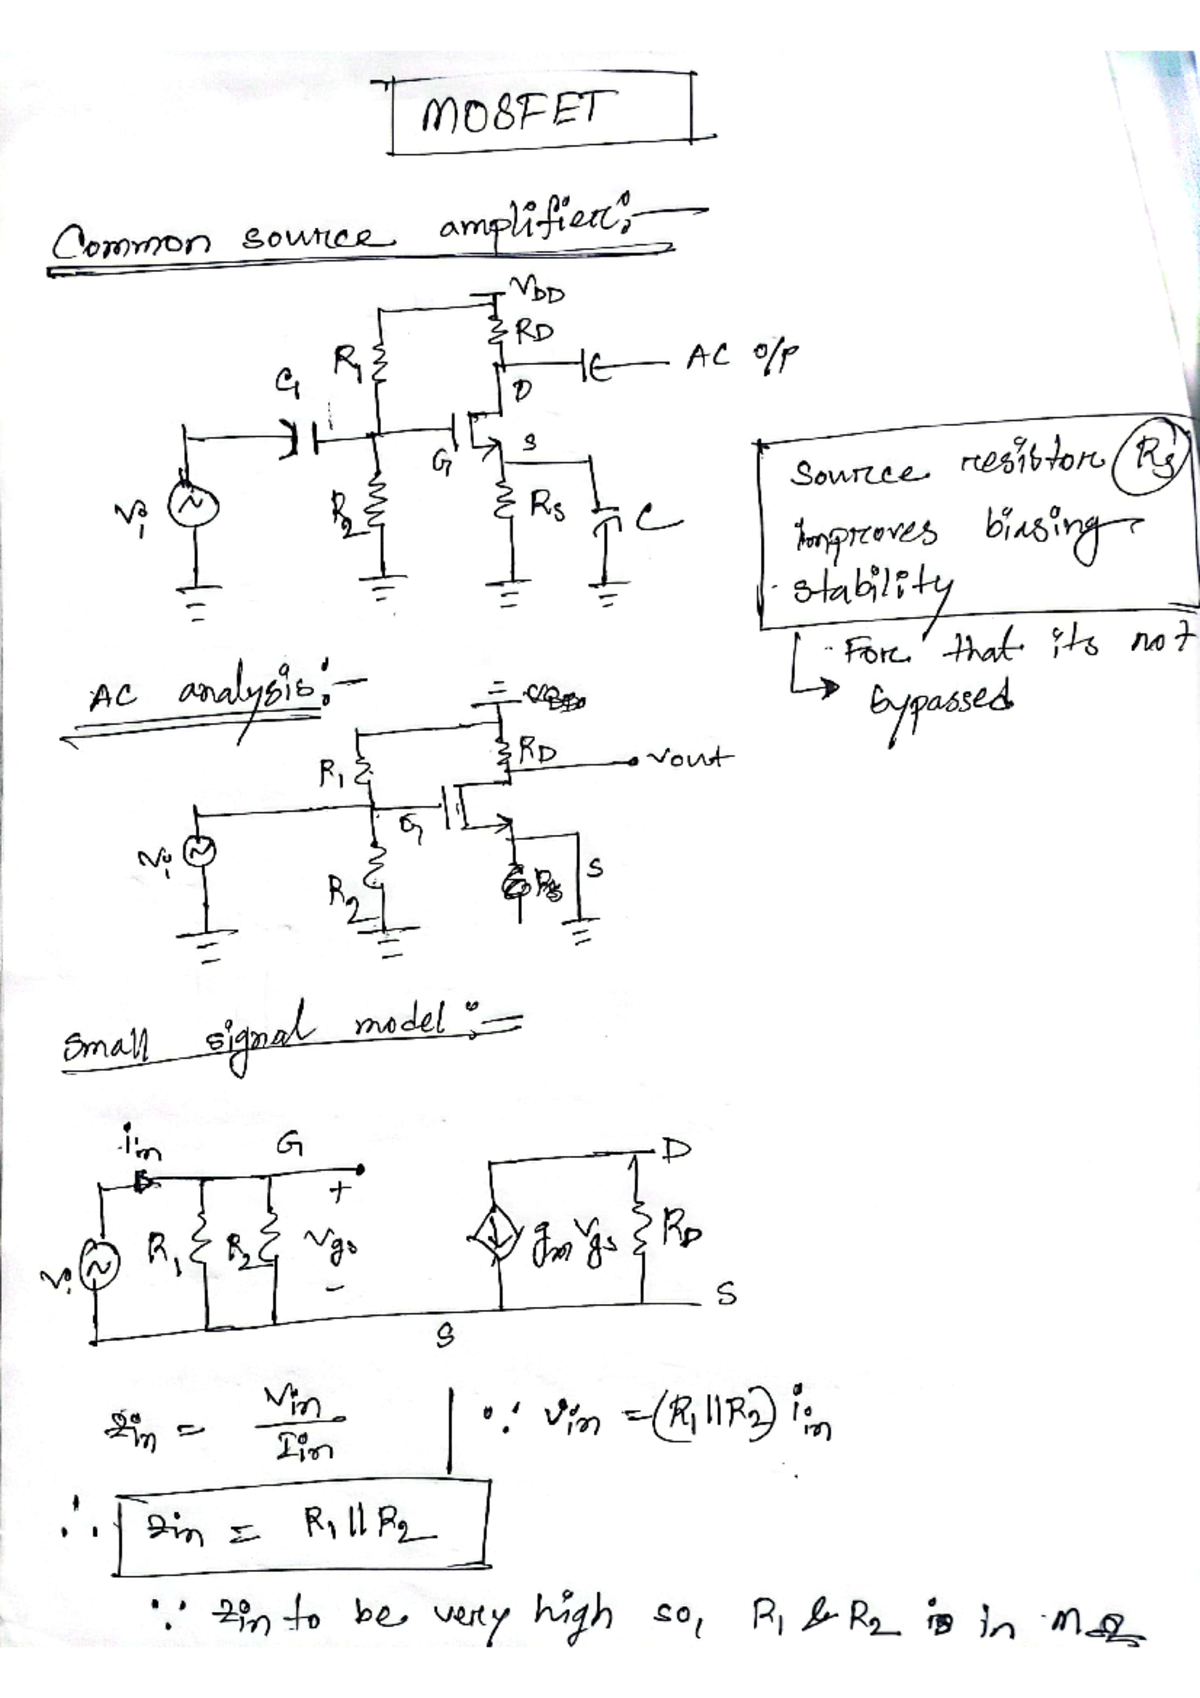 MOSFET
Common source amplifier :-
VDD
RD
R1
AC o/p
C1
D
G
S
Vi
R2
RS
C
Source resistor RS
improves biasing
stability
For that its not
bypassed
AC analysis :-
RD
Vout
R1
G
Vi
R2
RS
S
Small signal model :-
iin
G
D
+
Vi
R1
R2
Vgs
gmVgs
RD
-
S
S
Zin = Vin / Iin
∵ Vin = (R1 || R2) iin
∴ Zin = R1 || R2
∵ Zin to be very high so, R1 & R2 is in MΩ